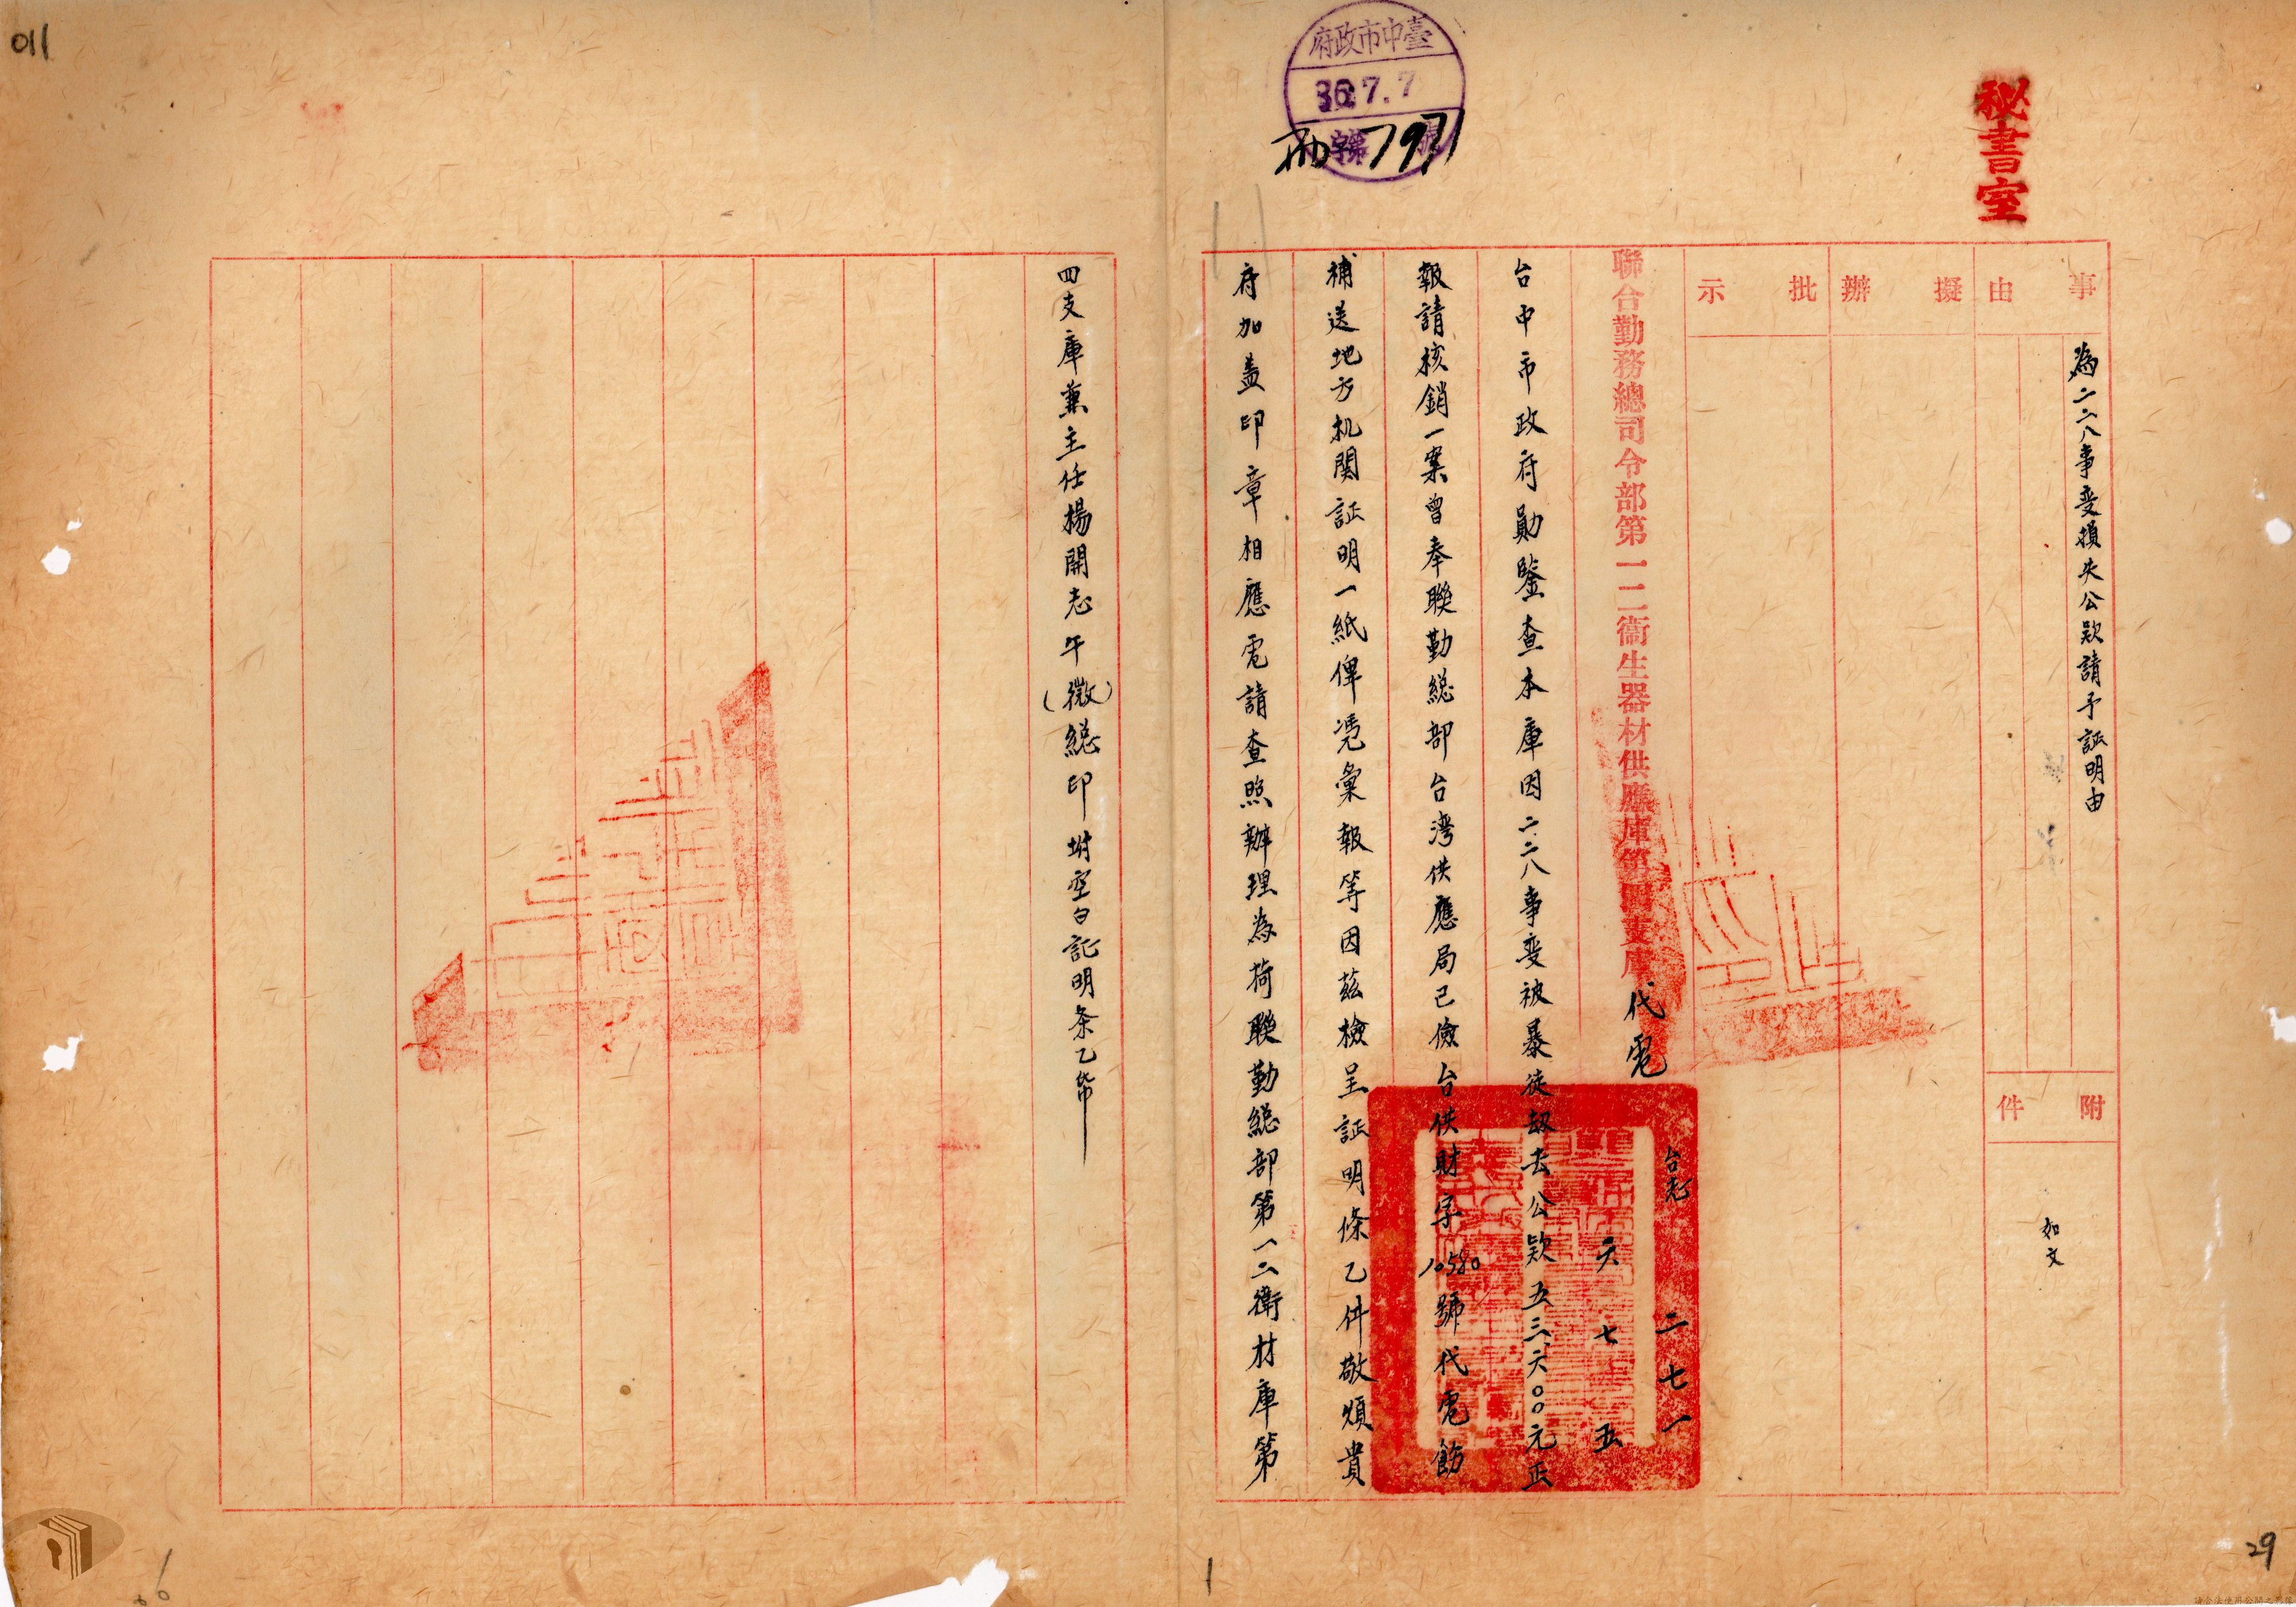 011
臺中市政府
36.7.7
字第7971號
秘書室
事由
為二二八事变損失公款請予証明由
附件
如文
擬辦
批示
聯合勤務總司令部第一二衞生器材供應庫第四支庫代電
台志 二七一
六 七 五
台中市政府勛鑒查本庫因二二八事变被暴徒刼去公款五三六〇〇元正
報請核銷一案曾奉聯勤総部台灣供應局已儉台供財字10580號代電飭
補送地方机関証明一紙俾凴彙報等因茲檢呈証明條乙件敬煩貴
府加盖印章相應電請查照辦理為荷聯勤総部第一二衛材庫第
四支庫兼主任楊開志午(微)総印坿空白証明条乙帋
29